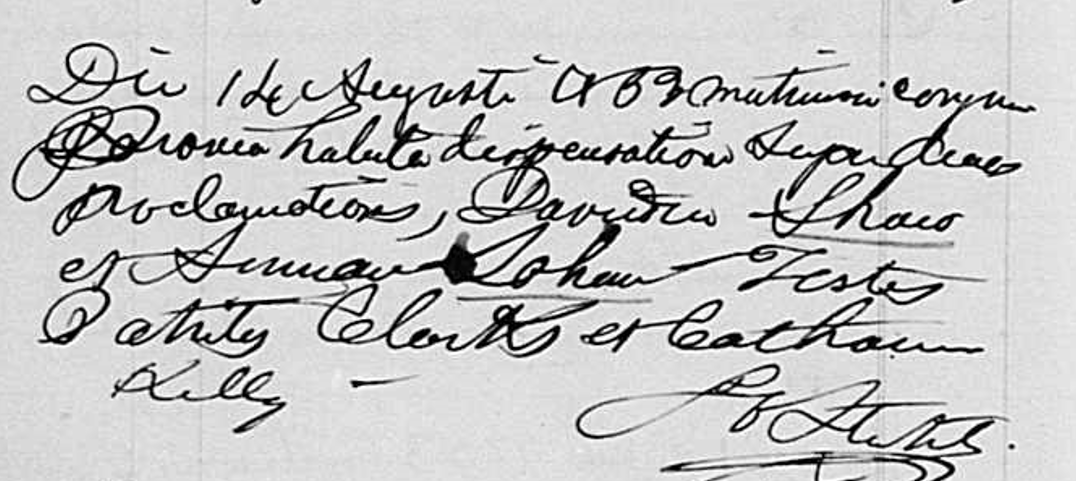 Die 14 Augusti 1883 matrimonio conjunxi
Previa habita dispensatione super duas
proclamationes, Davidem Shaw
et Annam Tohan Testes
Patritus Clark et Catharina
Kelly -